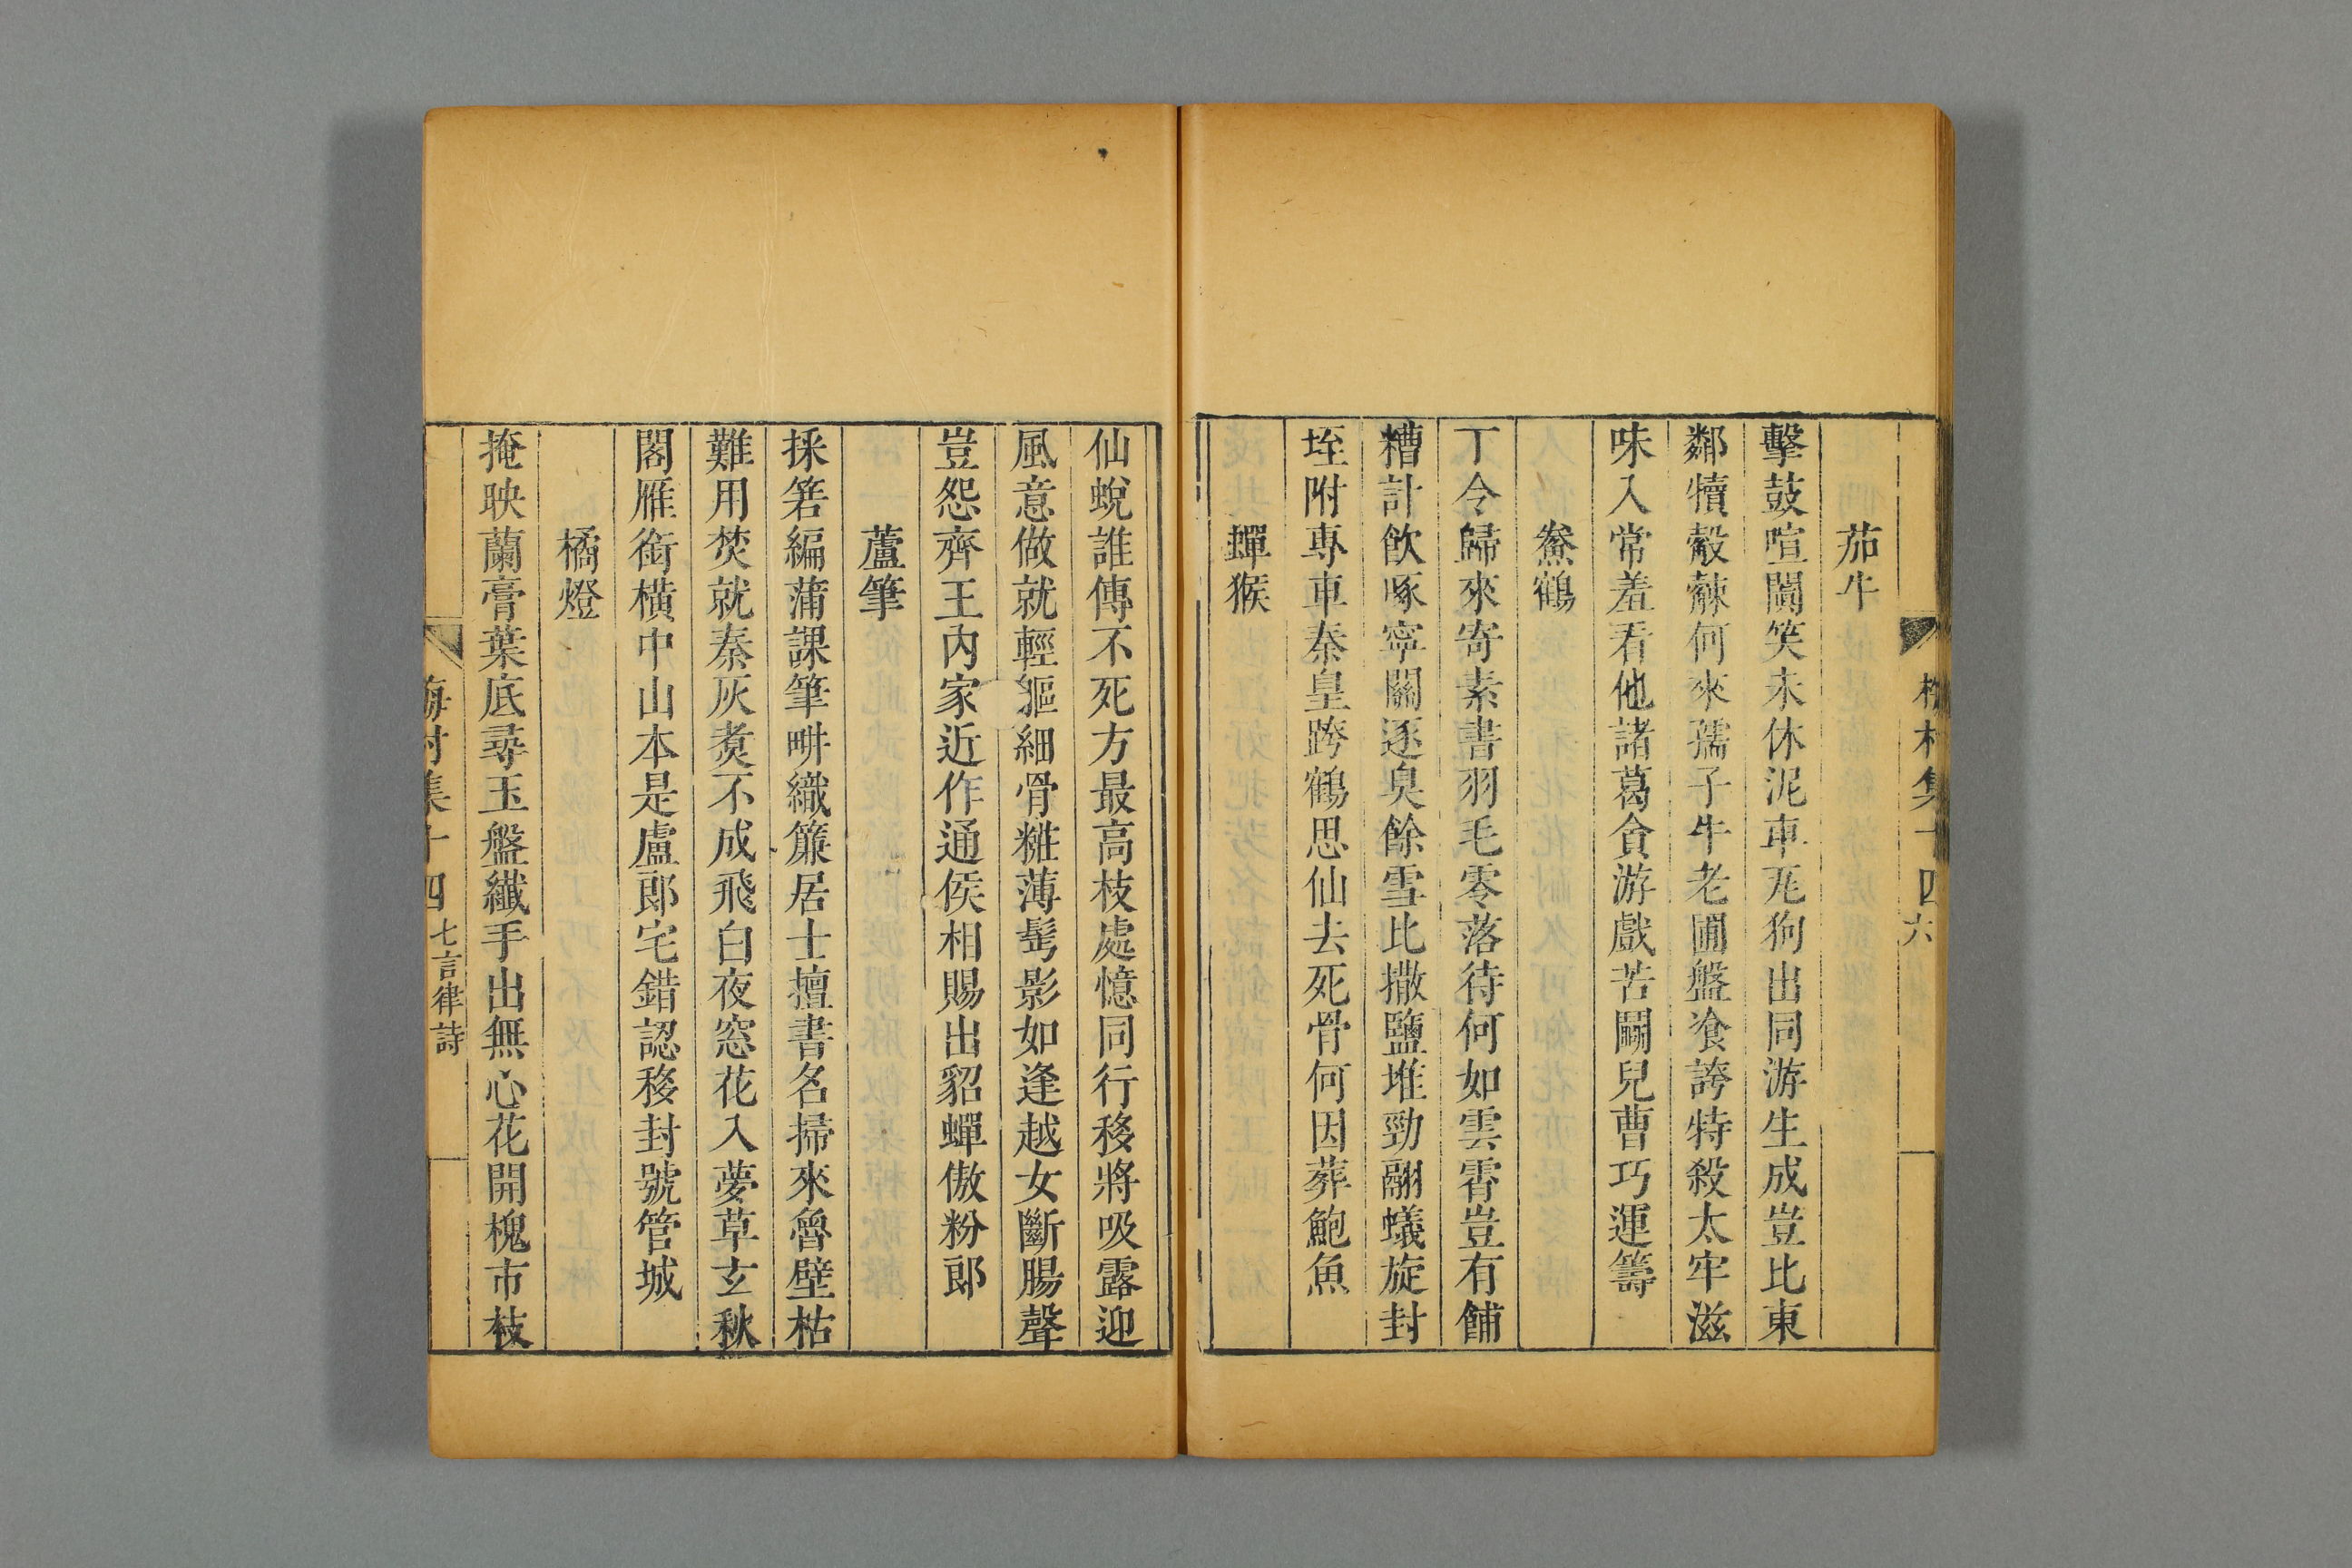 梅村集十四 六
茄牛
擊鼓喧闐笑未休泥車瓦狗出同游生成豈比東
鄰犢觳觫何來孺子牛老圃盤飡誇特殺太牢滋
味入常羞看他諸葛貪游戲苦鬭兒曹巧運籌
鮝鶴
丁令歸來寄素書羽毛零落待何如雲霄豈有餔
糟計飲啄寧關逐臭餘雪比撒鹽堆勁翮蟻旋封
垤附專車秦皇跨鶴思仙去死骨何因葬鮑魚
蟬猴
仙蛻誰傳不死方最高枝處憶同行移將吸露迎
風意做就輕軀細骨糚薄髩影如逢越女斷腸聲
豈怨齊王內家近作通侯相賜出貂蟬傲粉郎
蘆筆
採箬編蒲課筆畊織簾居士擅書名掃來魯壁枯
難用焚就秦灰煑不成飛白夜窓花入夢草玄秋
閣雁銜橫中山本是盧郎宅錯認移封號管城
橘燈
掩映蘭膏葉底尋玉盤纖手出無心花開槐市枝
梅村集十四 七言律詩